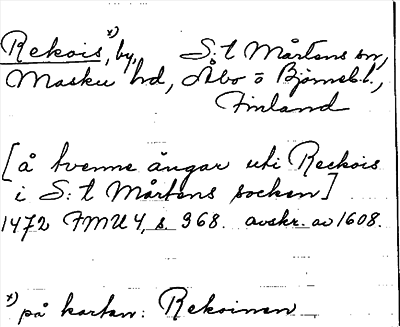 Rekois, x) by, S:t Mårtens sn,
Masku hd, Åbo o Björneb.l.,
Finland
[å tvenne ängar uti Reckois
i S:t Mårtens socken]
1472 FMU 4, s. 968. avskr. av 1608.
x) på kartan: Rekoinen